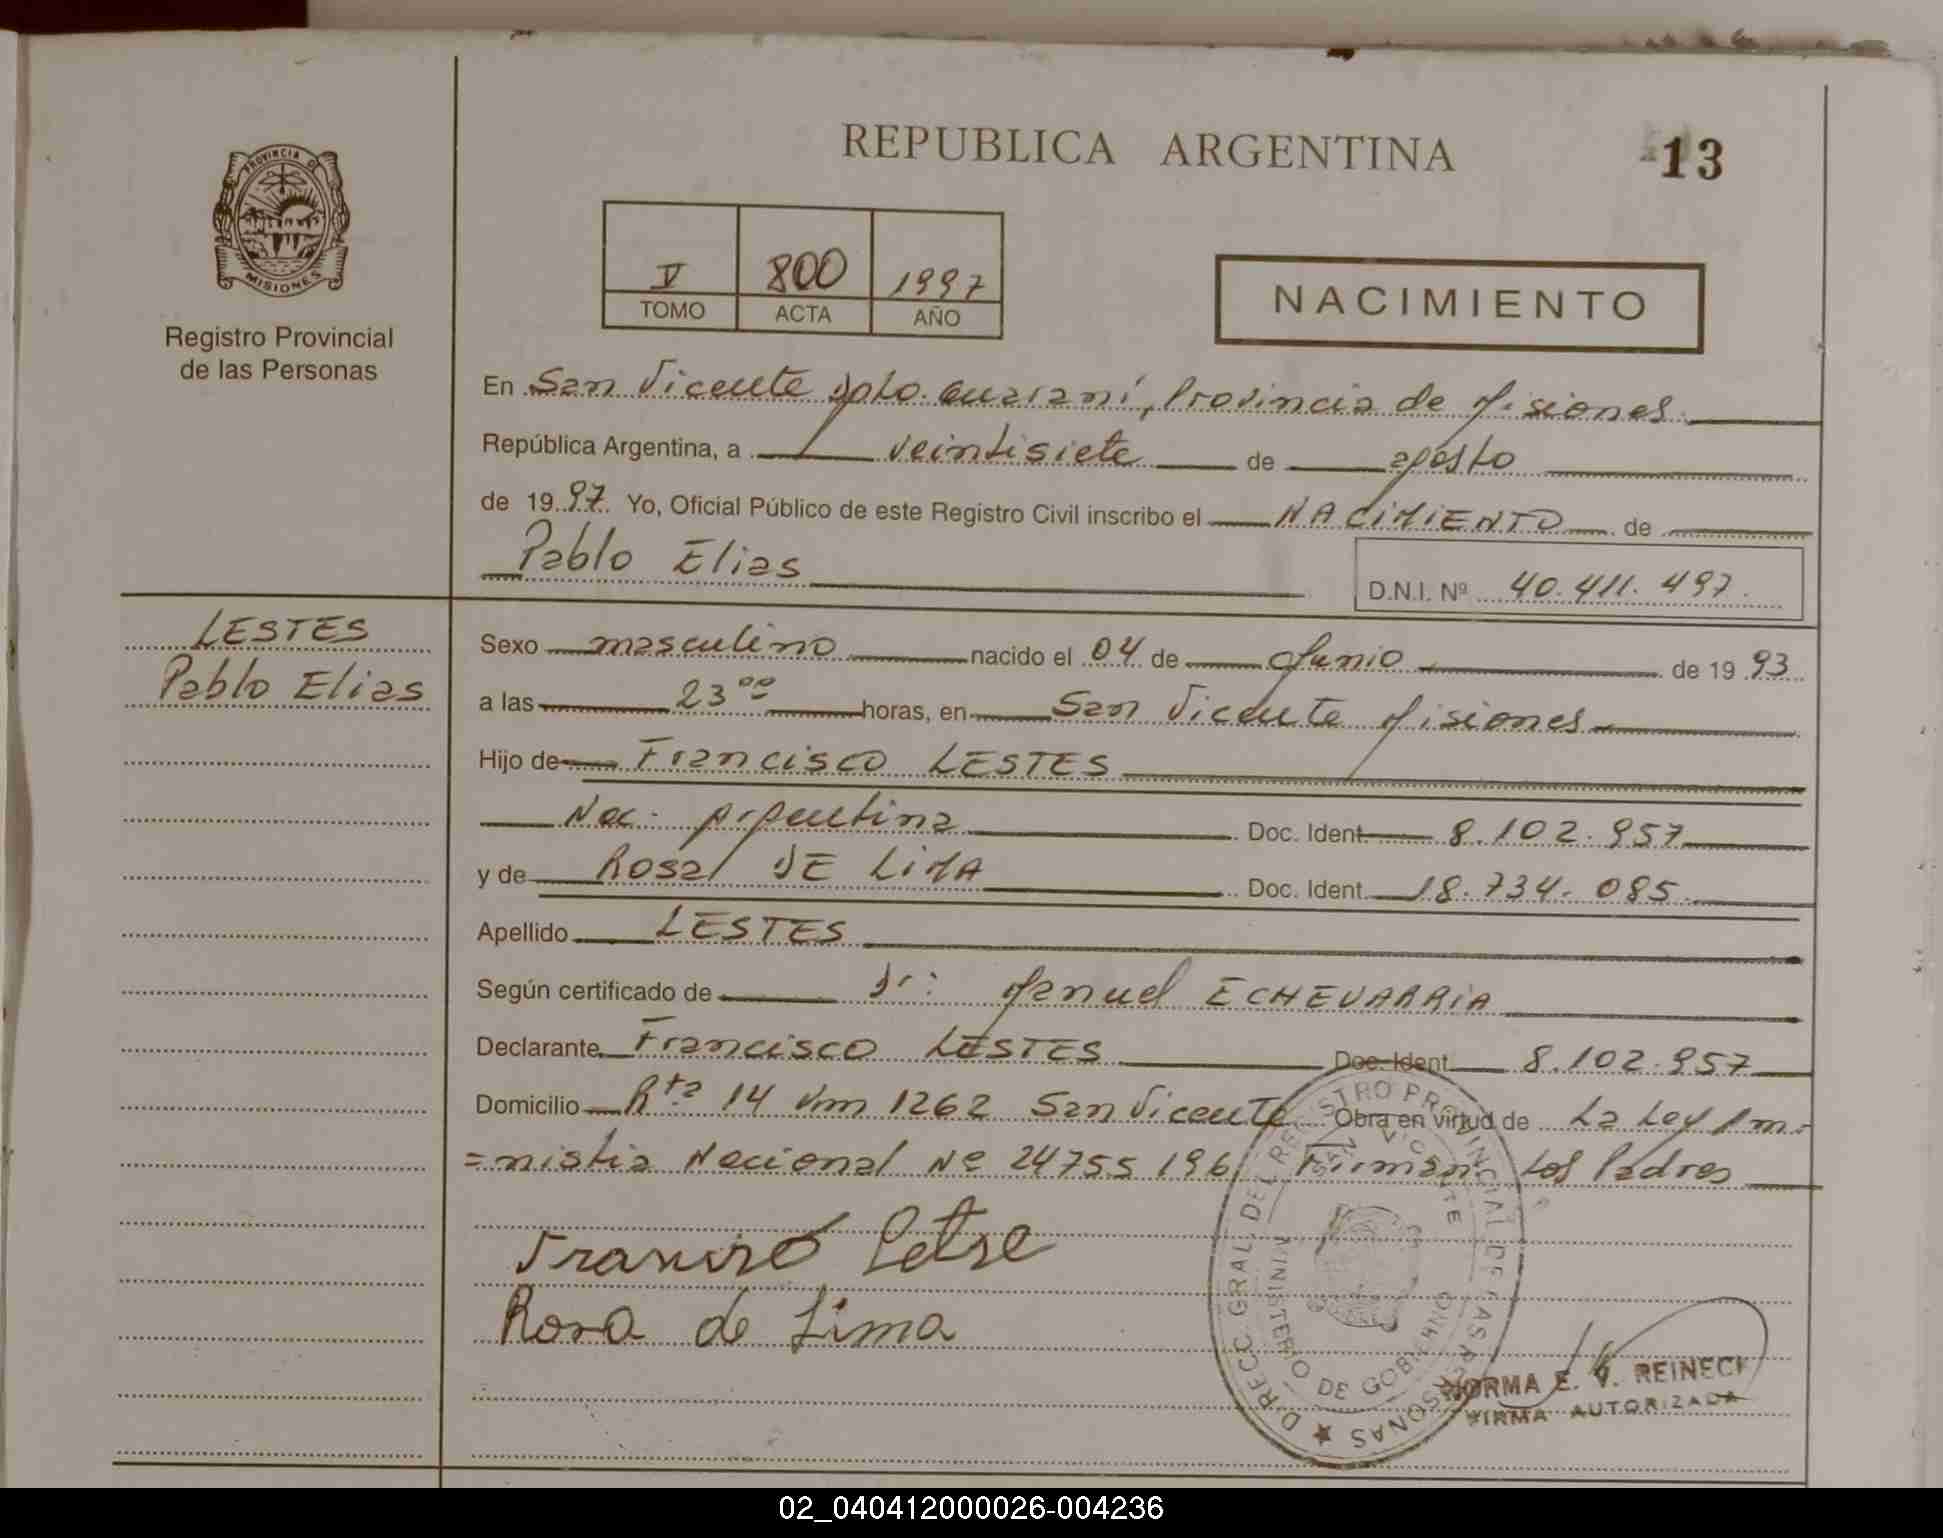 REPUBLICA ARGENTINA
13
PROVINCIA DE
MISIONES
Registro Provincial
de las Personas
V 800 1997
TOMO ACTA AÑO
NACIMIENTO
En San Vicente Dpto. Guaraní, Provincia de Misiones
República Argentina, a veintisiete de agosto
de 1997. Yo, Oficial Público de este Registro Civil inscribo el NACIMIENTO de
Pablo Elias
D.N.I. Nº 40.411.497.
LESTES
Pablo Elias
Sexo masculino nacido el 04 de Junio de 1993
a las 23 oo horas, en San Vicente Misiones
Hijo de Francisco LESTES
Nac. Argentina Doc. Ident. 8.102.957
y de Rosa DE LIMA Doc. Ident. 18.734.085
Apellido LESTES
Según certificado de Dr: Manuel ECHEVARRIA
Declarante Francisco LESTES Doc. Ident. 8.102.957
Domicilio Rta 14 Km 1262 San Vicente Obra en virtud de La Ley Am-
=nistia Nacional Nº 24755 196 Firman Los Padres
Rosa de Lima
DIRECC. GRAL. DEL REGISTRO PROVINCIAL DE LAS PERSONAS
SAN VICENTE
MINISTERIO DE GOBIERNO
NORMA E. V. REINECK
FIRMA AUTORIZADA
02_040412000026-004236